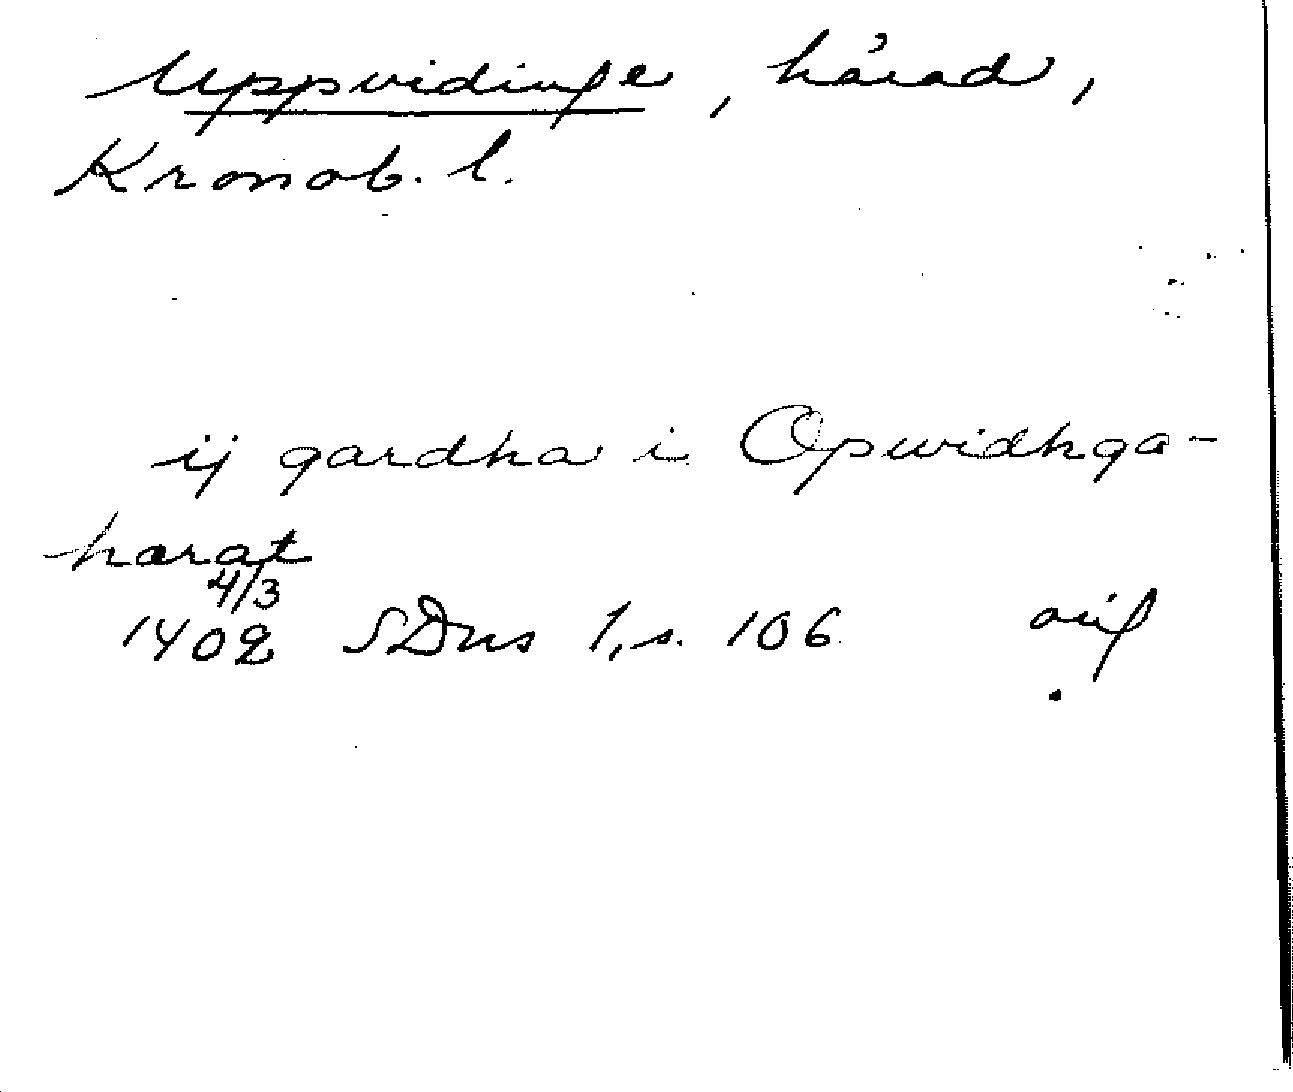 Uppvidinge, härad,
Kronob. l.
ij gardha i Opwidhga-
harat
4/3
1402 SDns 1, s. 106 orig